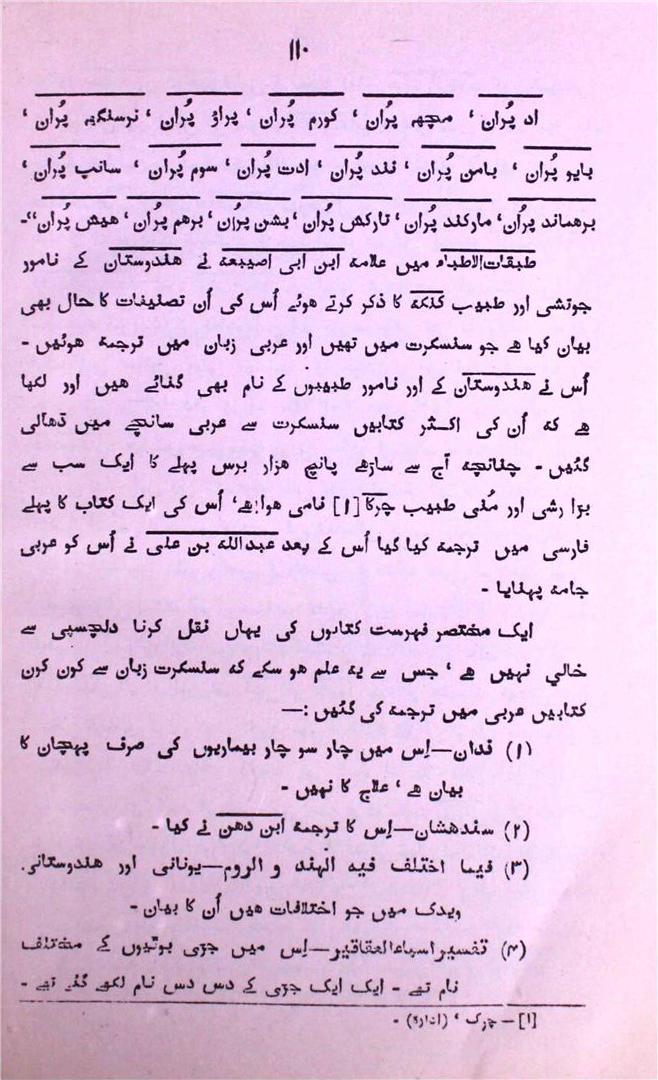 ۱۱۰
اد پُران ، مچھہ پُران ، کورم پُران ، پراؤ پُران ، نرسنگہہ پُران ،
بایو پُران ، بامن پُران ، نند پُران ، ادت پُران ، سوم پُران ، سانپ پُران ،
برهماند پُران، مارکند پُران، تارکش پُران، بشن پرُان، برهم پرُان، هیش پُران‘‘-
طبقات‌الاطباء میں علامہ ابن ابی اصیبعہ نے هندوستان کے نامور
جوتشی اور طبیب کنکہ کا ذکر کرتے هوئے اُس کی اُن تصنیفات کا حال بھی
بیان کیا هے جو سنسکرت میں تھیں اور عربی زبان میں ترجمہ هوئیں -
اُس نے هندوستان کے اور نامور طبیبوں کے نام بھی گنائے هیں اور لکھا
هے کہ اُن کی اکثر کتابیں سنسکرت سے عربی سانچے میں ڈھالی
گئیں - چنانچہ آج سے ساڑھے پانچ هزار برس پہلے کا ایک سب سے
بڑا رشی اور مُنی طبیب چرکا [۱] نامی هوا هے، اُس کی ایک کتاب کا پہلے
فارسی میں ترجمہ کیا گیا اُس کے بعد عبداللہ بن علی نے اُس کو عربی
جامہ پہنایا -
ایک مختصر فہرست کتابوں کی یہاں نقل کرنا دلچسپی سے
خالي نہیں هے ، جس سے یہ علم هو سکے کہ سنسکرت زبان سے کون کون
کتابیں عربی میں ترجمہ کی گئیں :—
(۱) قدان—اِس میں چار سو چار بیماریوں کی صرف پہچان کا
بیان هے ، علاج کا نہیں -
(۲) سندهشان—اِس کا ترجمہ ابن دهن نے کیا -
(۳) فیما اختلف فیہ الہند و الروم—یونانی اور هندوستانی
ویدک میں جو اختلافات هیں اُن کا بیان -
(۴) تفسیر اسماءالعقاقیر—اِس میں جڑی بوٹیوں کے مختلف
نام تھے - ایک ایک جڑی کے دس دس نام لکھے گئے تھے -
[۱] - چرک ،